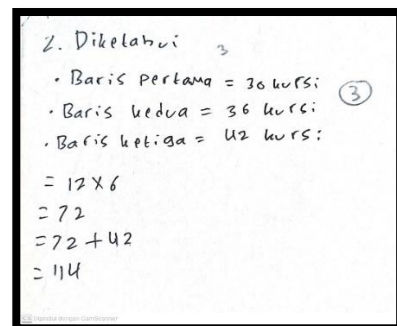 2. Diketahui
3
• Baris pertama = 30 kursi
3
• Baris kedua = 36 kursi
• Baris ketiga = 42 kursi
= 12 x 6
= 72
= 72 + 42
= 114
CS Dipindai dengan CamScanner